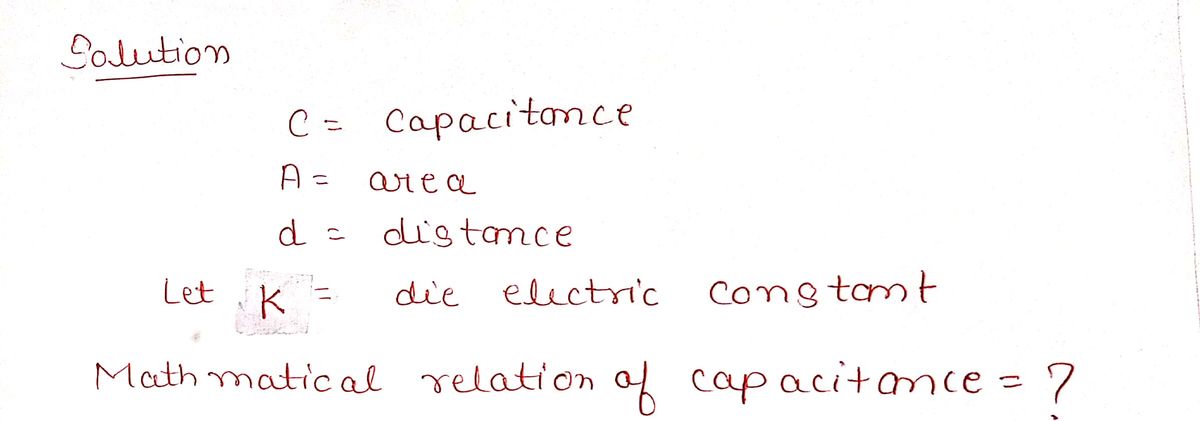 Solution
C = capacitance
A = area
d = distance
Let K = die electric constant
Mathmatical relation of capacitance = ?